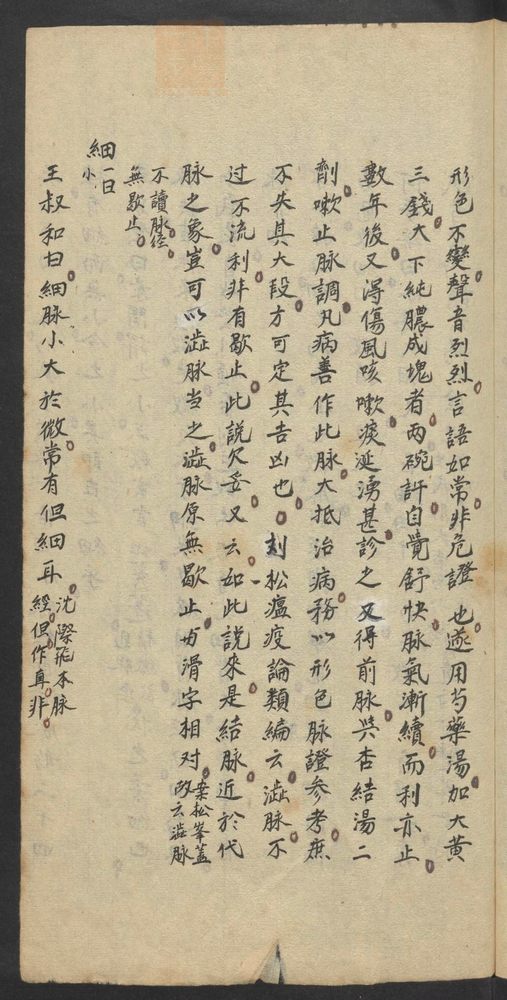 形色不變聲音烈烈言語如常非危證也遂用芍藥湯加大黃
三錢大下純膿成塊者兩碗許自覺舒快脉氣漸續而利亦止
數年後又得傷風咳嗽痰涎湧甚診之又得前脉與杏桔湯二
劑嗽止脉調凡病善作此脉大抵治病務以形色脉證參考庶
不失其大段方可定其吉凶也○刘松瘟疫論類編云澁脉不
过不流利非有歇止此說欠妥又云如此說來是結脉近於代
脉之象豈可以澁脉当之澁脉原無歇止与滑字相对
案松峯蓋
改云澁脉
不讀脉经
無歇止
細一曰
小
王叔和曰細脉小大於微常有但細耳
沈際飛本脉
經但作直非